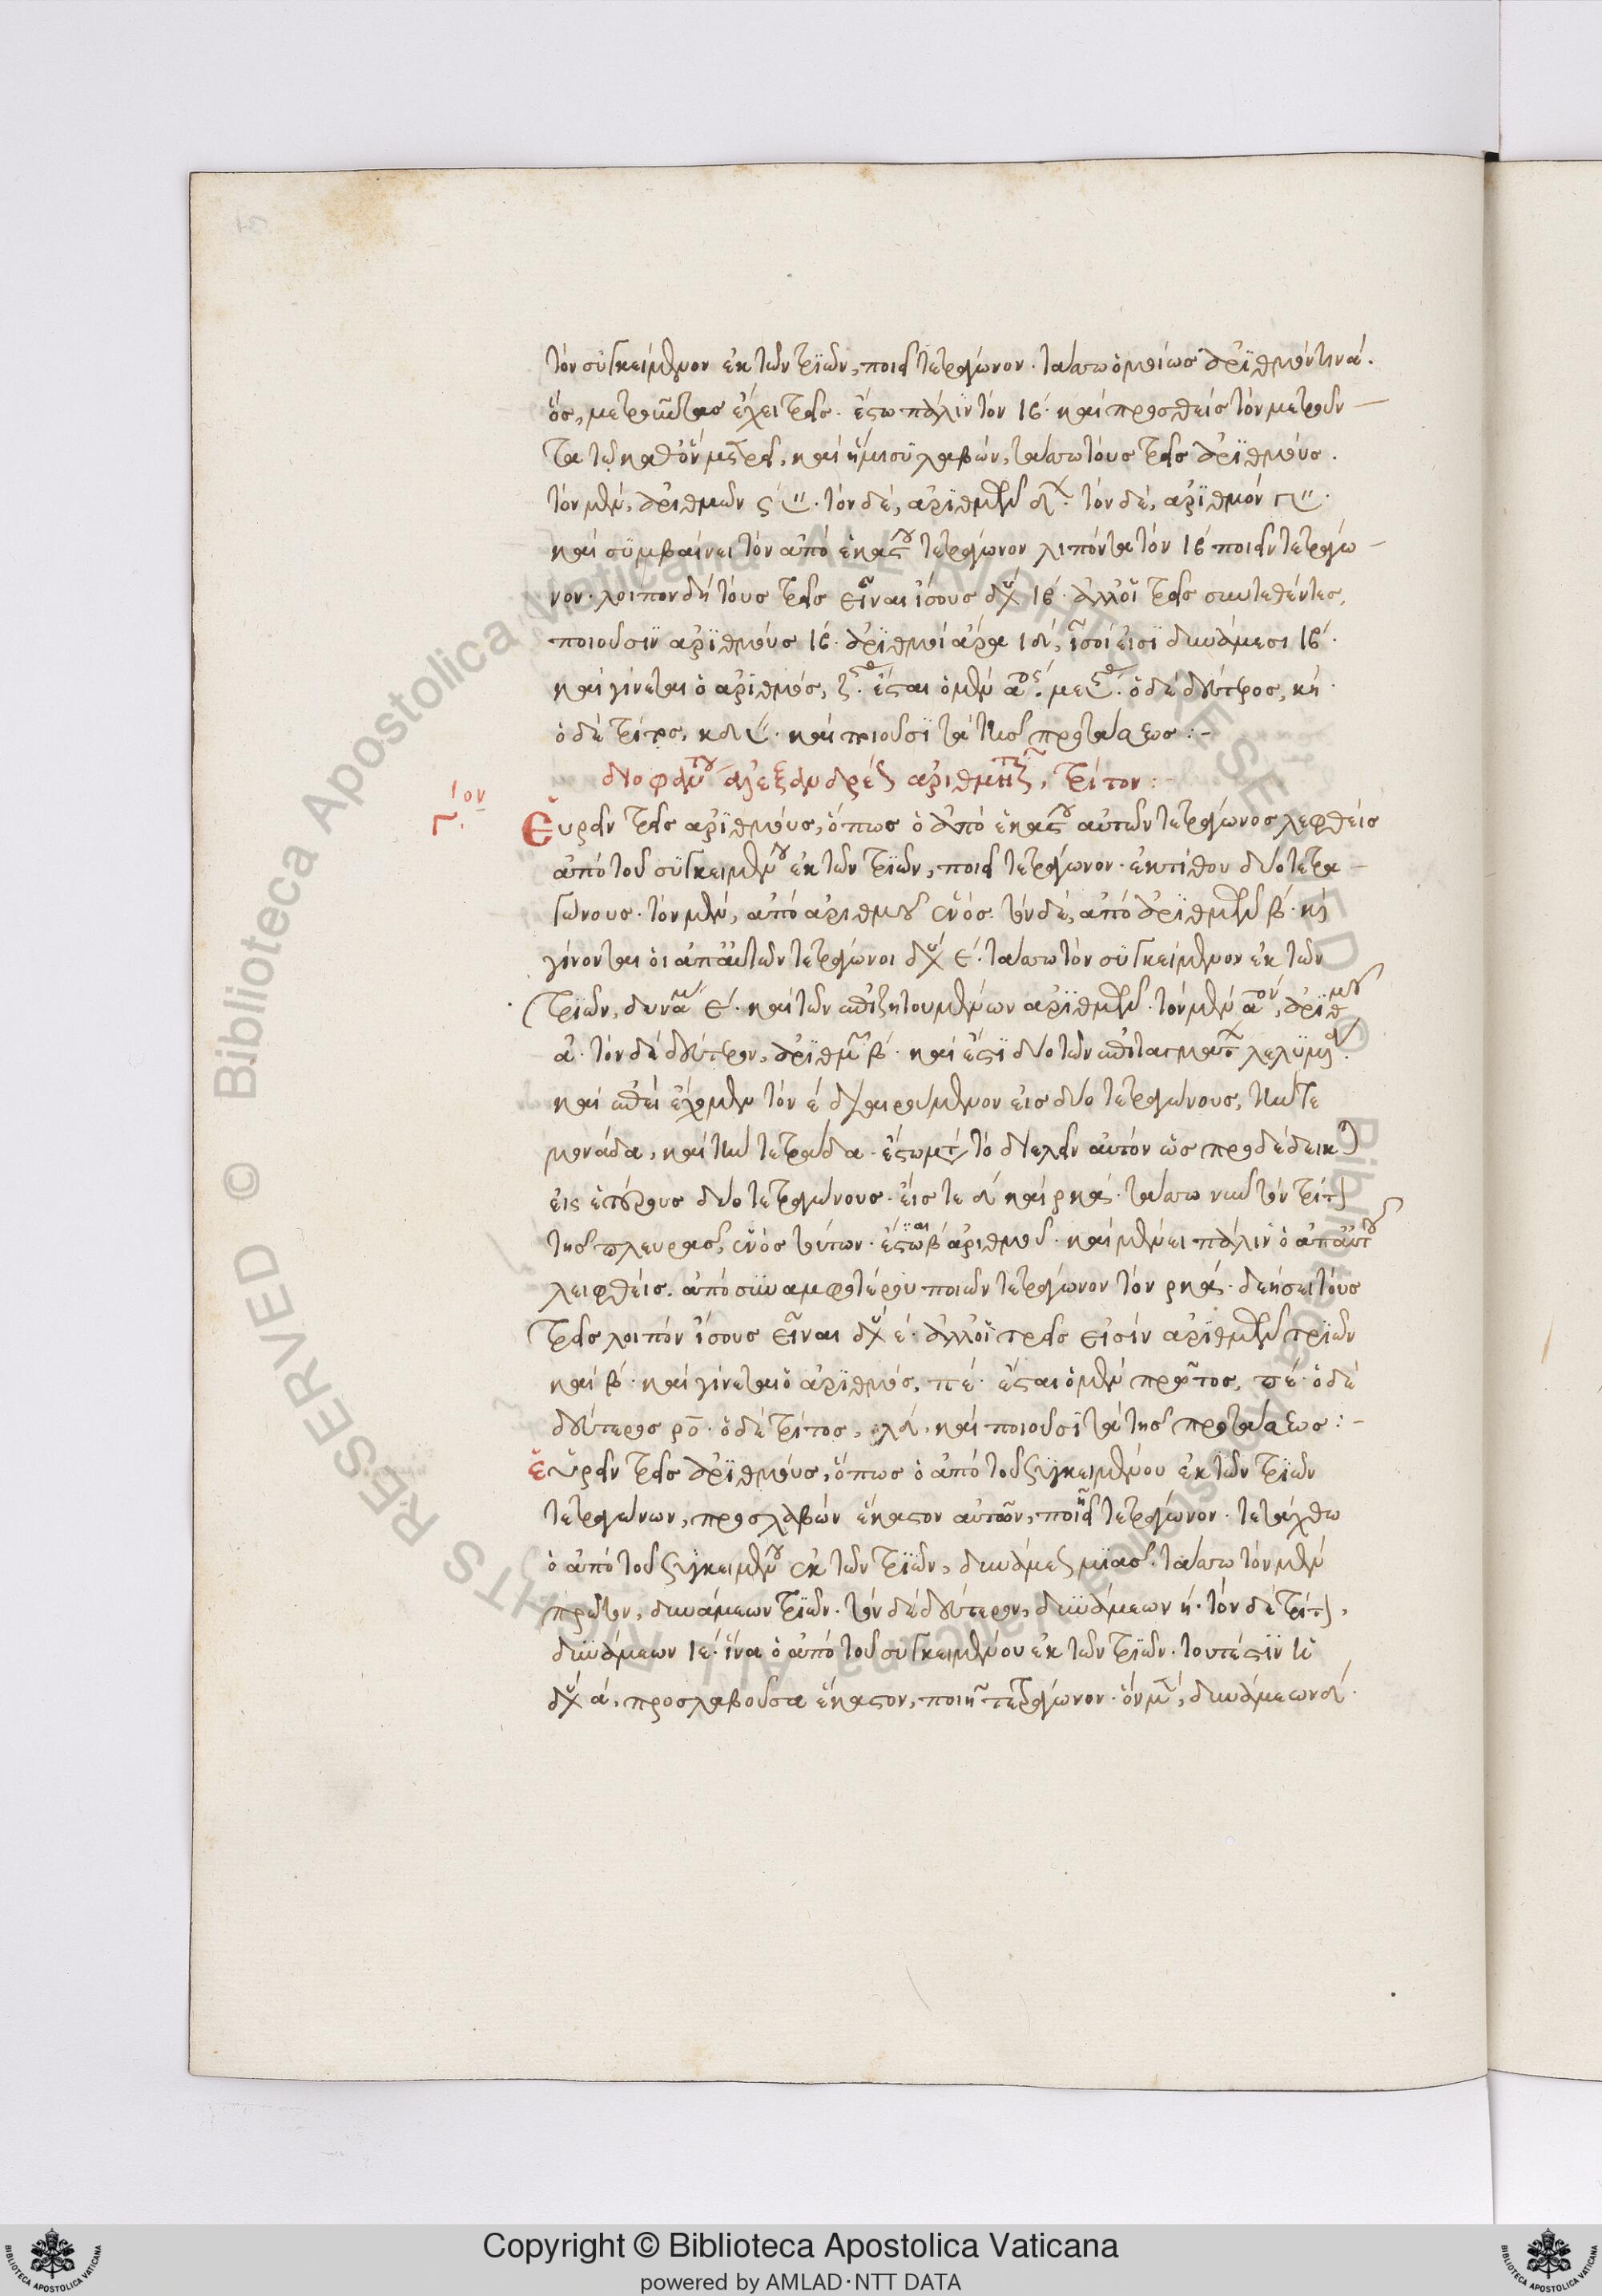 τὸν συγκείμενον ἐκ τῶν τριῶν, ποιεῖ τετράγωνον. τάσσω ὁμοίως ἀριθμόν τινα.
ὃς, μετροῦντας ἔχει τρεῖς. ἔστω πάλιν τὸν ιβ. καὶ προσθεὶς τὸν μετροῦν
τα τῷ καθ' ὃν μετρεῖ, καὶ ἥμισυ λαβών, τάσσω τοὺς τρεῖς ἀριθμούς.
τὸν μὲν, ἀριθμῶν
καὶ συμβαίνει τὸν ἀπὸ ἑκάστου τετράγωνον λιπόντα τὸν ιβ ποιεῖν τετράγω
νον. λοιπὸν δὴ τοὺς τρεῖς εἶναι ἴσους δυ ιβ. ἀλλ' οἱ τρεῖς συντεθέντες,
ποιοῦσιν ἀριθμοὺς ιδ. ἀριθμοὶ ἄρα ιδ, ἴσοι εἰσὶ δυνάμεσι ιβ.
καὶ γίνεται ὁ ἀριθμός, ἔσται ὁ μὲν αος. ὁ δὲ δεύτερος, κη.
ὁ δὲ τρίτος, καὶ ποιοῦσι τὰ τῆς προτάσεως :-
διοφάντου ἀλεξανδρέως ἀριθμητικῶν, τρίτον :-
γιον
Εὑρεῖν τρεῖς ἀριθμούς, ὅπως ὁ ἀπὸ ἑκάστου αὐτῶν τετράγωνος λειφθεὶς
ἀπὸ τοῦ συγκειμένου ἐκ τῶν τριῶν, ποιεῖ τετράγωνον. ἐκτίθου δύο τετρα
γώνους. τὸν μὲν, ἀπὸ ἀριθμοῦ ἑνός. τὸν δὲ, ἀπὸ ἀριθμῶν β. καὶ
γίνονται οἱ ἀπ' αὐτῶν τετράγωνοι δυ ε. τάσσω τὸν συγκείμενον ἐκ τῶν
τριῶν, δυνάμ ε. καὶ τῶν ἐπιζητουμένων ἀριθμῶν. τὸν μὲν αον, ἀριθμοῦ
α. τὸν δὲ δεύτερον, ἀριθμῶν β. καὶ ἔστι δύο τῶν ἐπιταγμάτων λελυμένα.
καὶ ἐπεὶ ἔχομεν τὸν ε διαιρούμενον εἰς δύο τετραγώνους, τήν τε
μονάδα, καὶ τὴν τετράδα. ἔστω μετὰ τὸ διελεῖν αὐτὸν ὡς προδέδεικται
εἰς ἑτέρους δύο τετραγώνους. εἴς τε δ καὶ ρκα. τάσσω νῦν τὸν τρίτον
τῆς πλευρᾶς, ἑνὸς τούτων. ἔστω β ἀριθμοῦ. καὶ μένει πάλιν ὁ ἀπ' αὐτοῦ
λειφθεὶς. ἀπὸ συναμφοτέρου ποιῶν τετράγωνον τὸν ρκα. δεήσει τοὺς
τρεῖς λοιπὸν ἴσους εἶναι δυ ε. ἀλλ' οἱ τρεῖς εἰσὶν ἀριθμῶν τριῶν
καὶ β. καὶ γίνεται ὁ ἀριθμός, πε. ἔσται ὁ μὲν πρῶτος, πε. ὁ δὲ
δεύτερος ρο. ὁ δὲ τρίτος, λδ. καὶ ποιοῦσι τὰ τῆς προτάσεως :-
εὑρεῖν τρεῖς ἀριθμούς, ὅπως ὁ ἀπὸ τοῦ συγκειμένου ἐκ τῶν τριῶν
τετραγώνων, προσλαβὼν ἕκαστον αὐτῶν, ποιῇ τετράγωνον. τετάχθω
ὁ ἀπὸ τοῦ συγκειμένου ἐκ τῶν τριῶν, δυνάμεως μιᾶς. τάσσω τὸν μὲν
πρῶτον, δυνάμεων τριῶν. τὸν δὲ δεύτερον, δυνάμεων η. τὸν δὲ τρίτον,
δυνάμεων ιε. ἵνα ὁ ἀπὸ τοῦ συγκειμένου ἐκ τῶν τριῶν. τουτέστιν ἡ
δυ α, προσλαβοῦσα ἕκαστον, ποιῇ τετράγωνον. ὃν μὲν, δυνάμεων δ.
Copyright © Biblioteca Apostolica Vaticana
powered by AMLAD·NTT DATA